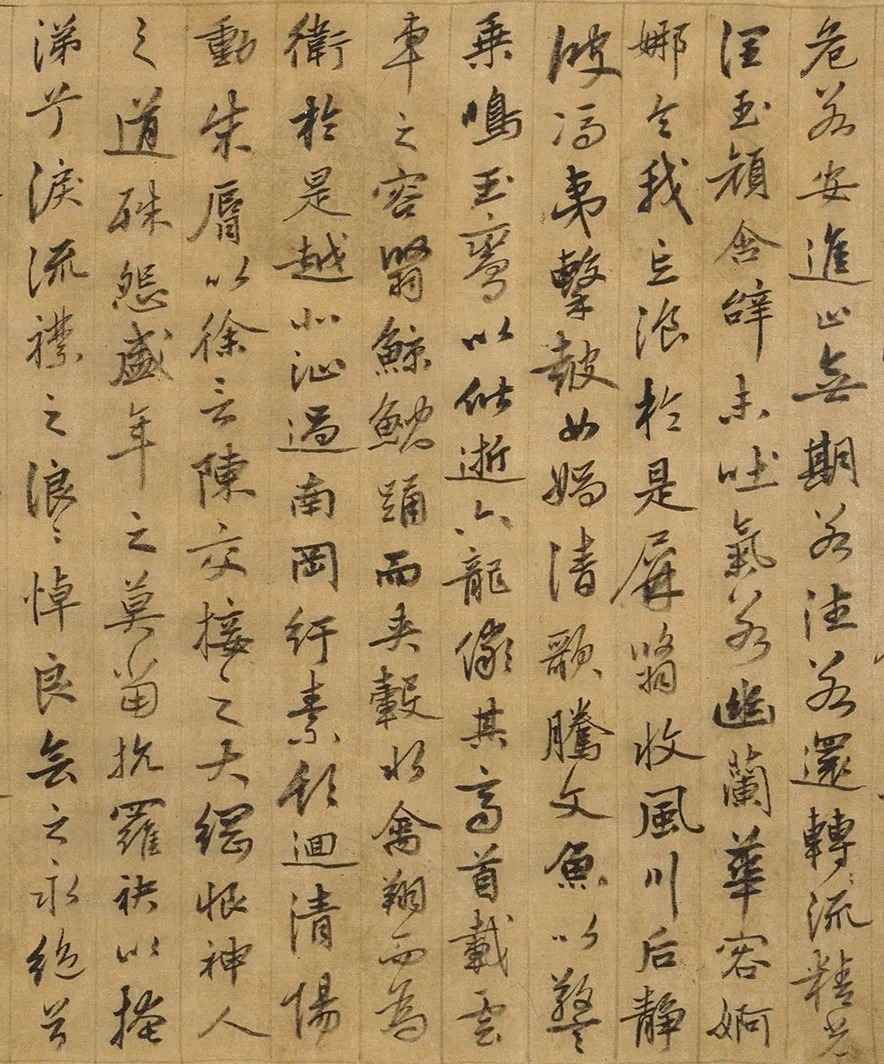 危若安進止無期若往若還轉流精光
潤玉顏含辭未吐氣若幽蘭華容婀
娜令我忘湌於是屏翳收風川后靜
波馮夷擊鼓女媧清歌騰文魚以警
乘鳴玉鸞以偕逝六龍儼其齊首載雲
車之容翳鯨鯢踊而夾轂水禽翔而為
衛於是越北沚過南岡紆素領迴清陽
動朱脣以徐言陳交接之大綱恨神人
之道殊怨盛年之莫當抗羅袂以掩
涕兮淚流襟之浪〻悼良會之永絕兮